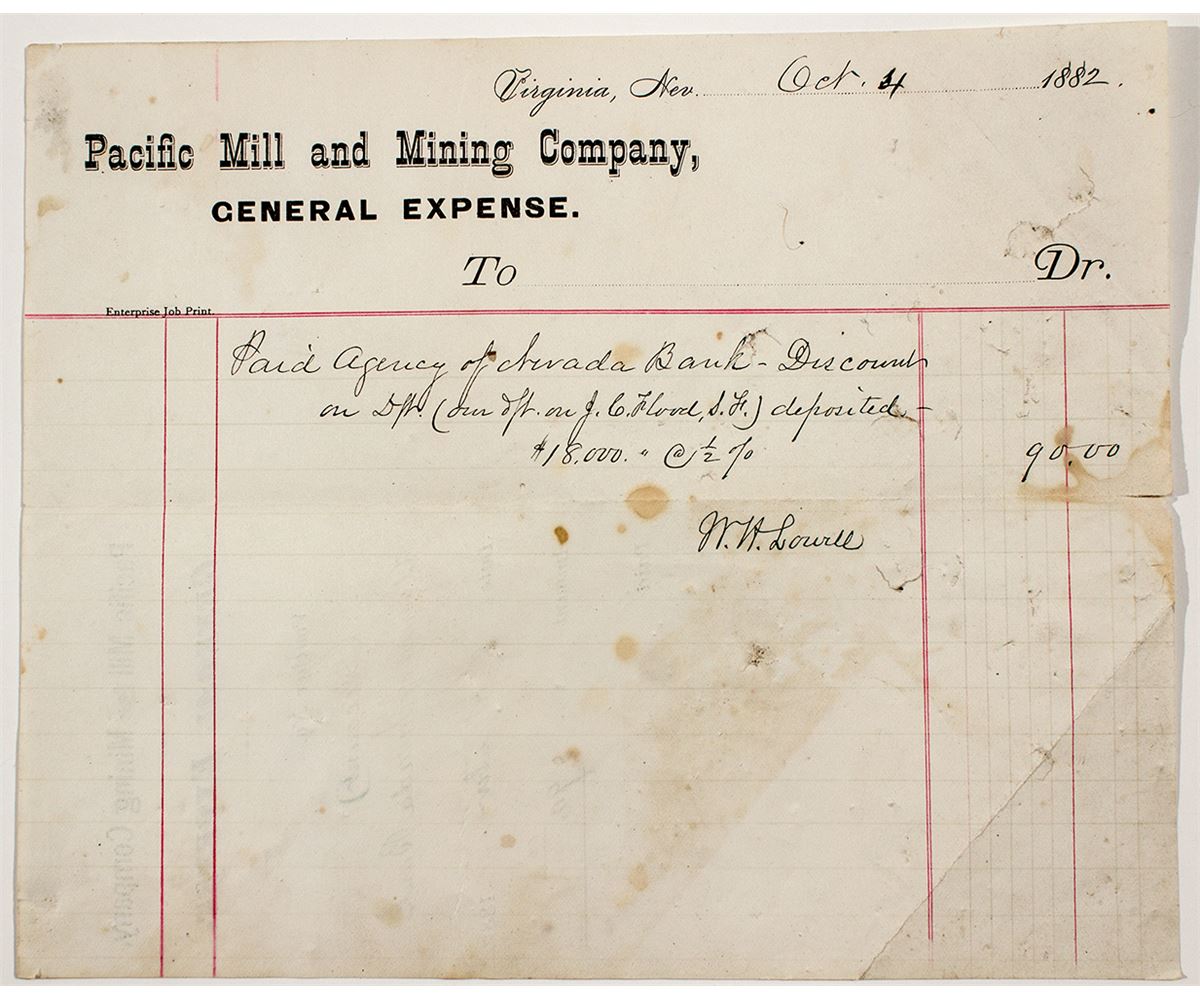 Virginia, Nev. Oct. 4 1882.
Pacific Mill and Mining Company,
GENERAL EXPENSE.
To Dr.
Enterprise Job Print.
Paid Agency of Nevada Bank - Discount
on Dft. (our dft. on J. C. Flood, S. F.) deposited -
$18,000. " @ ½ % 90.00
W. H. Lowell
Pacific Mill & Mining Company